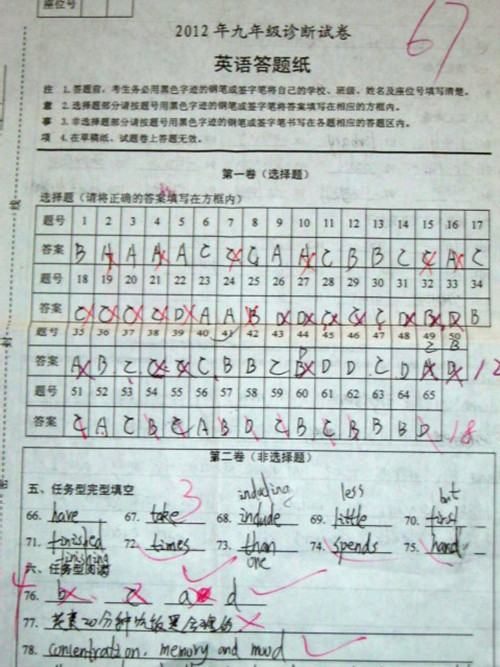 座位号
67
2012年九年级诊断试卷
英语答题纸
注 1.答题前，考生务必用黑色字迹的钢笔或签字笔将自己的学校、班级、姓名及座位号填写清楚。
意 2.选择题部分请按题号用黑色字迹的钢笔或签字笔将答案填写在相应的方框内。
事 3.非选择题部分请按题号用黑色字迹的钢笔或签字笔书写在各题相应的答题区内。
项 4.在草稿纸、试题卷上答题无效。
第一卷（选择题）
选择题（请将正确的答案填写在方框内）
题号 1 2 3 4 5 6 7 8 9 10 11 12 13 14 15 16 17
答案 B A A A A C C C A A C B B C C A C
题号 18 19 20 21 22 23 24 25 26 27 28 29 30 31 32 33 34
答案 C C C D A A B D D C C C D B D B
题号 35 36 37 38 39 40 41 42 43 44 45 46 47 48 49 50
答案 A B C C C C B B C B D D C D D
12
题号 51 52 53 54 55 56 57 58 59 60 61 62 63 64 65
答案 C A C B C A B D C B C B B B D
18
第二卷（非选择题）
五、任务型完型填空
3
including less but
66. have 67. take 68. include 69. little 70. first
71. finished 72. times 73. than 74. spends 75. hand
finishing one
六、任务型阅读
4
76. b c a d
77. 花费20分钟
78. concentration, memory and mood